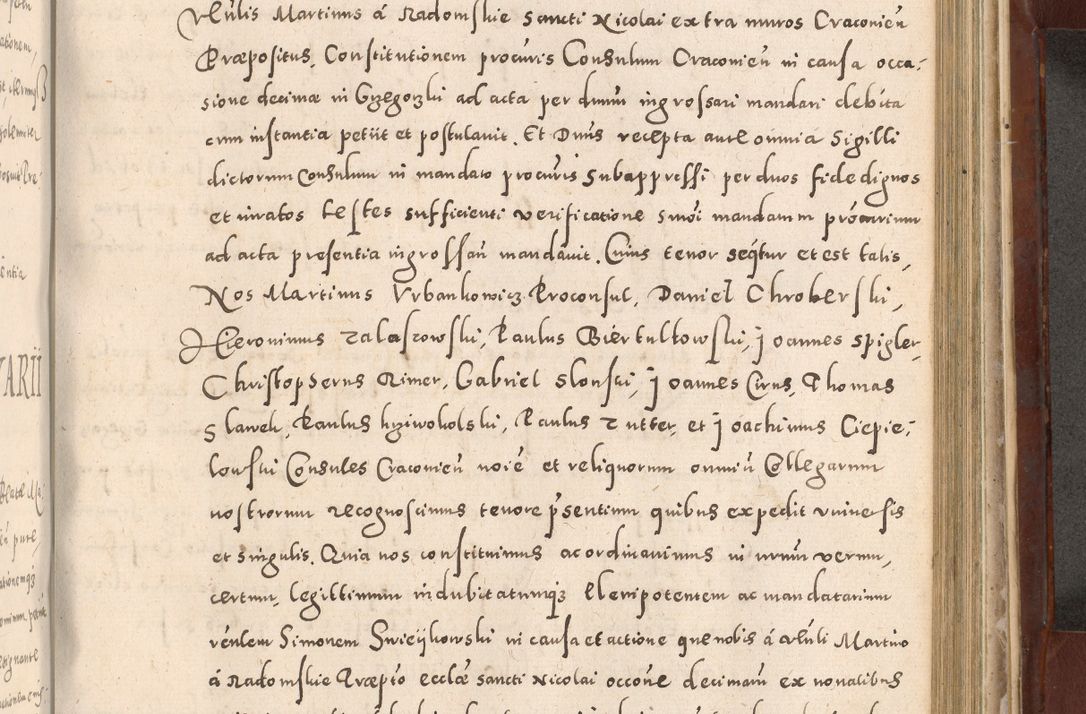 Vlulis Martinus á Radomskie Sancti Nicolai extra muros Craconień
Præpositus, Constitutionem procuris Consulum Craconień in causa occa-
sione decimæ in Grzegorzki ad acta per dnum ingrossari mandari debita
cum instantia petiit et postulavit. Et Dnus recepta ante omnia Sigilli
dictorum Consulum in mandato procuris Subappressi per duos fidedignos
et iuratos testes sufficienti verificatione
ad acta presentia ingrossań mandavit. Cuius tenor seqtur et est talis,
Nos Martinus Vrbankowicz Proconsul, Daniel Chroberski,
Hieronimus Zalaszowski, Paulus Biertultowski, Joannes Spigler,
Christopserus Rimer, Gabriel Slonski, Joannes Cirus, Thomas
Slawek, Paulus krziwokolski, Paulus Zutter, et Joachimus Ciepie-
lowski Consules Craconień noié et reliquorum omniū Collegarum
nostrorum recognoscimus tenore pśentium quibus expedit vniuersis
et singulis. Quia nos constituimus ac ordinauimus in urnum verum,
certum, legittimum indubitatumqz Plenipotentem ac mandatarium
Simonem Swieijkowski in causa et actione que nobis á Martino
á Radomskie Præpto ecclæ Sancti Nicolai occone decimarum ex noualibus